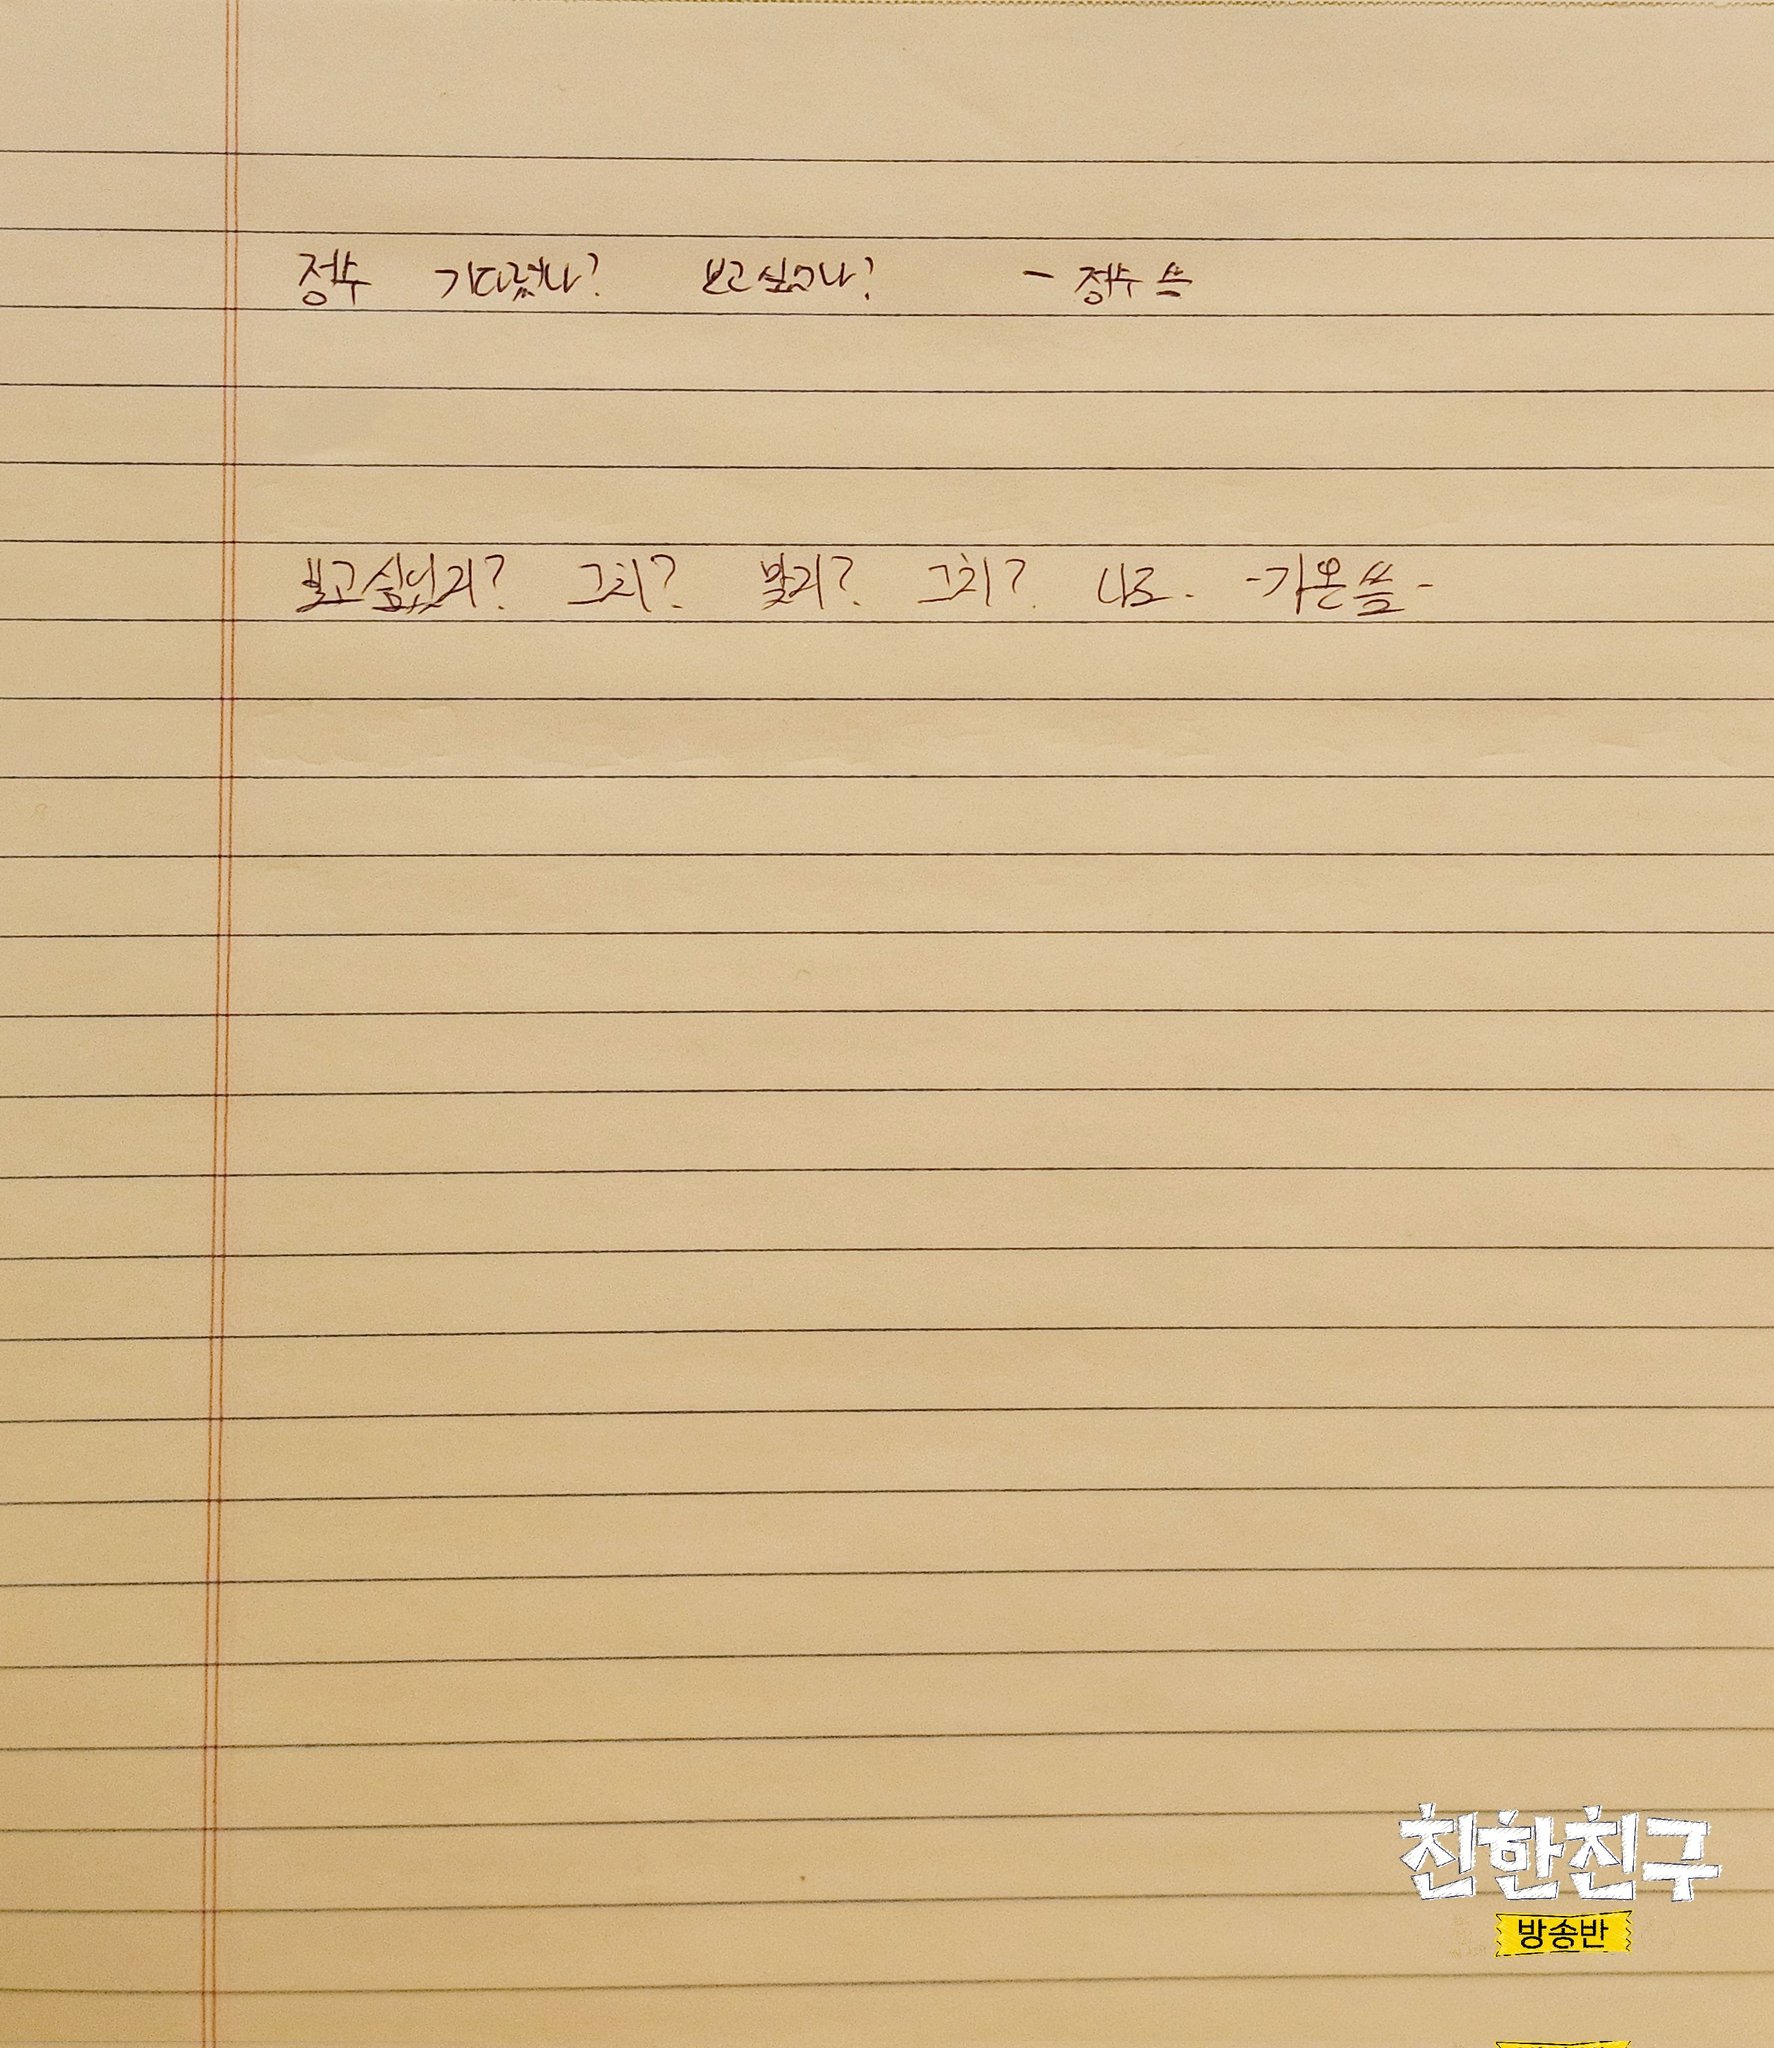 정수 기다렸나? 보고싶었나? - 정수 씀
보고싶었지? 그치? 맞지? 그치? 나도. -가온 씀-
친한친구
방송반